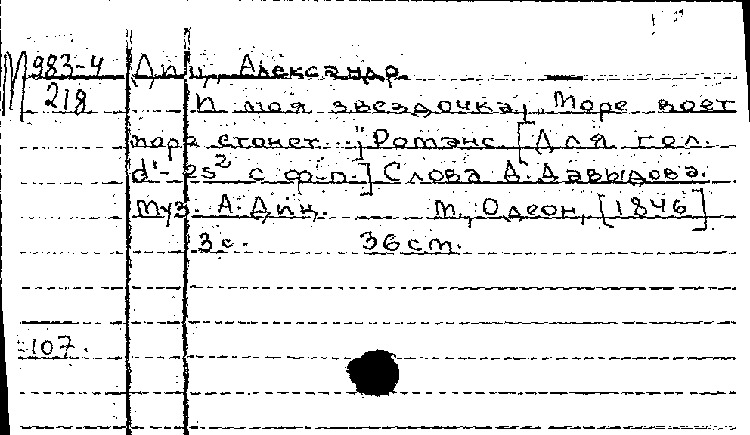 М 983-4 Диц, Александр
218 И моя звездочка, "Море воет
море стонет...", Романс [Для гол.
d'-es² с ф-п.] Слова Д. Давыдова.
Муз. А. Диц. М., Одеон, [1846]
3 с. 36 см.
-107.